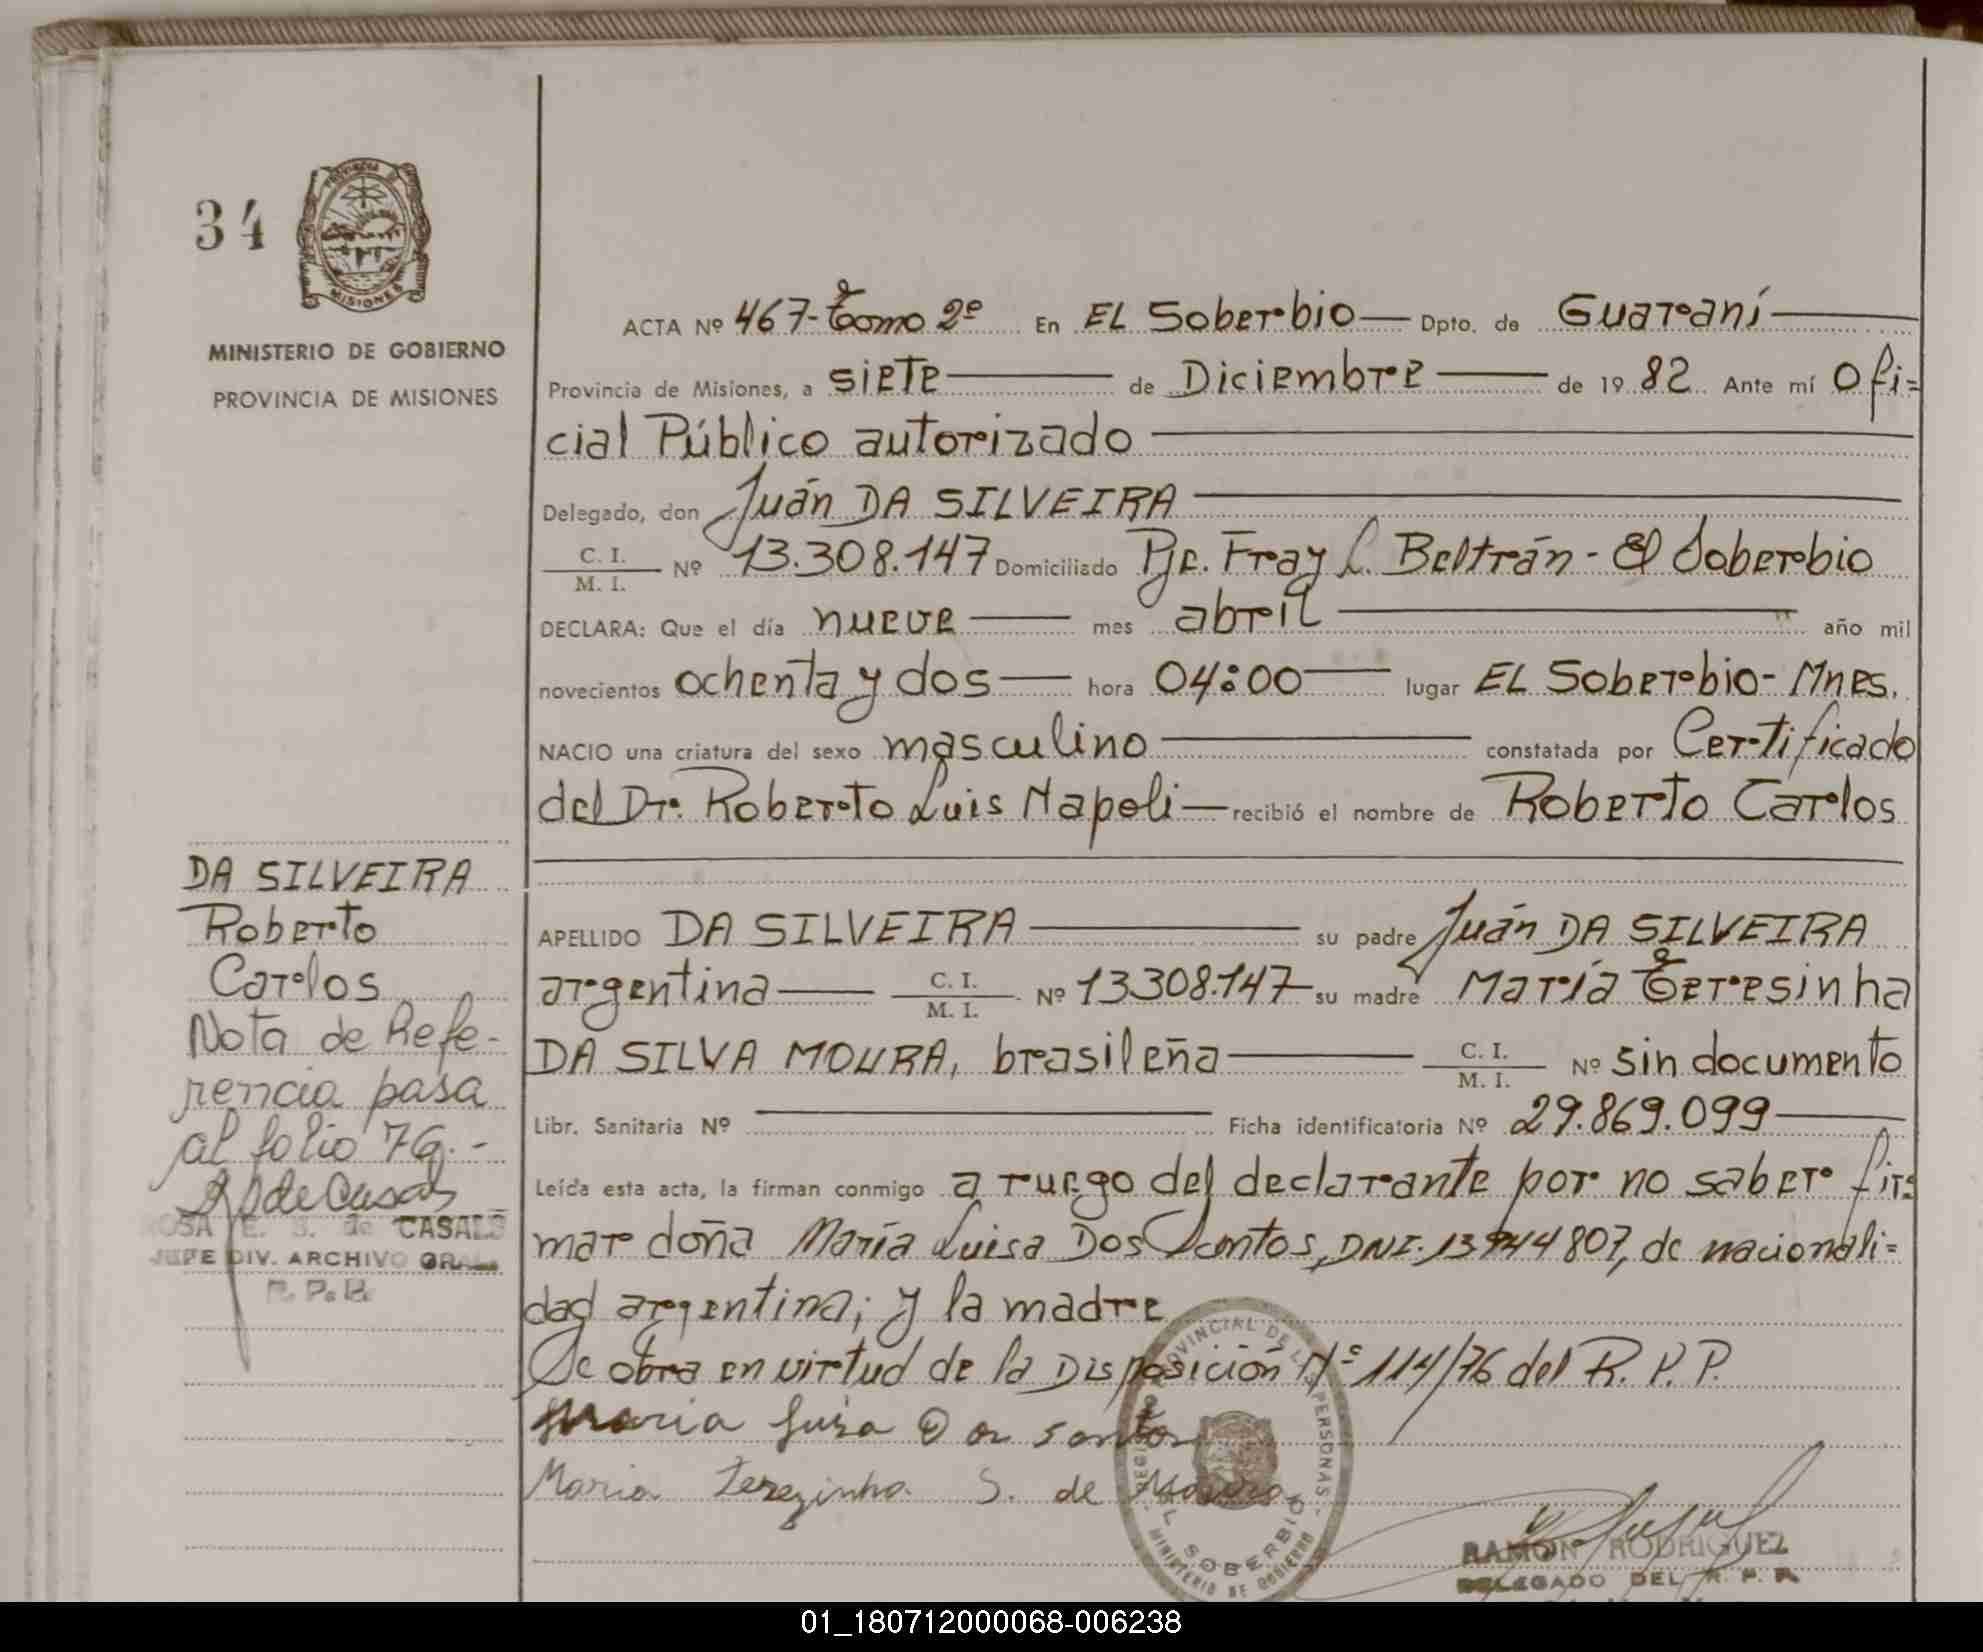 34
PROVINCIA DE
MISIONES
MINISTERIO DE GOBIERNO
PROVINCIA DE MISIONES
ACTA Nº 467-Tomo 2º En EL Soberbio Dpto. de Guaraní
Provincia de Misiones, a siete de Diciembre de 19 82 Ante mí Ofi=
cial Público autorizado
Delegado, don Juán DA SILVEIRA
C. I.
M. I. Nº 13.308.147 Domiciliado Pje. Fray L. Beltrán - El Soberbio
DECLARA: Que el día nueve mes abril año mil
novecientos ochenta y dos hora 04:00 lugar EL Soberbio- Mnes.
NACIO una criatura del sexo masculino constatada por Certificado
del Dr. Roberto Luis Napoli recibió el nombre de Roberto Carlos
DA SILVEIRA
Roberto
Carlos
Nota de Refe-
rencia pasa
al folio 76.-
ROSA E. S. de CASALS
JEFE DIV. ARCHIVO GRAL.
R. P. P.
APELLIDO DA SILVEIRA su padre Juán DA SILVEIRA
argentina C. I.
M. I. Nº 13308.147 su madre María Terresinha
DA SILVA MOURA, brasileña C. I.
M. I. Nº sin documento
Libr. Sanitaria Nº Ficha identificatoria Nº 29.869.099
Leída esta acta, la firman conmigo a ruego del declarante por no saber fir=
mar doña María Luisa Dos Santos, DNI. 13944807, de nacionali=
dad argentina; y la madre
Se obra en virtud de la Disposición Nº 114/76 del R. P. P.
Maria Luisa Dos Santos
Maria Terezinha S. de Moura
REGISTRO PROVINCIAL DE LAS PERSONAS
EL SOBERBIO
MINISTERIO DE GOBIERNO
RAMON RODRIGUEZ
DELEGADO DEL R. P. P.
01_180712000068-006238